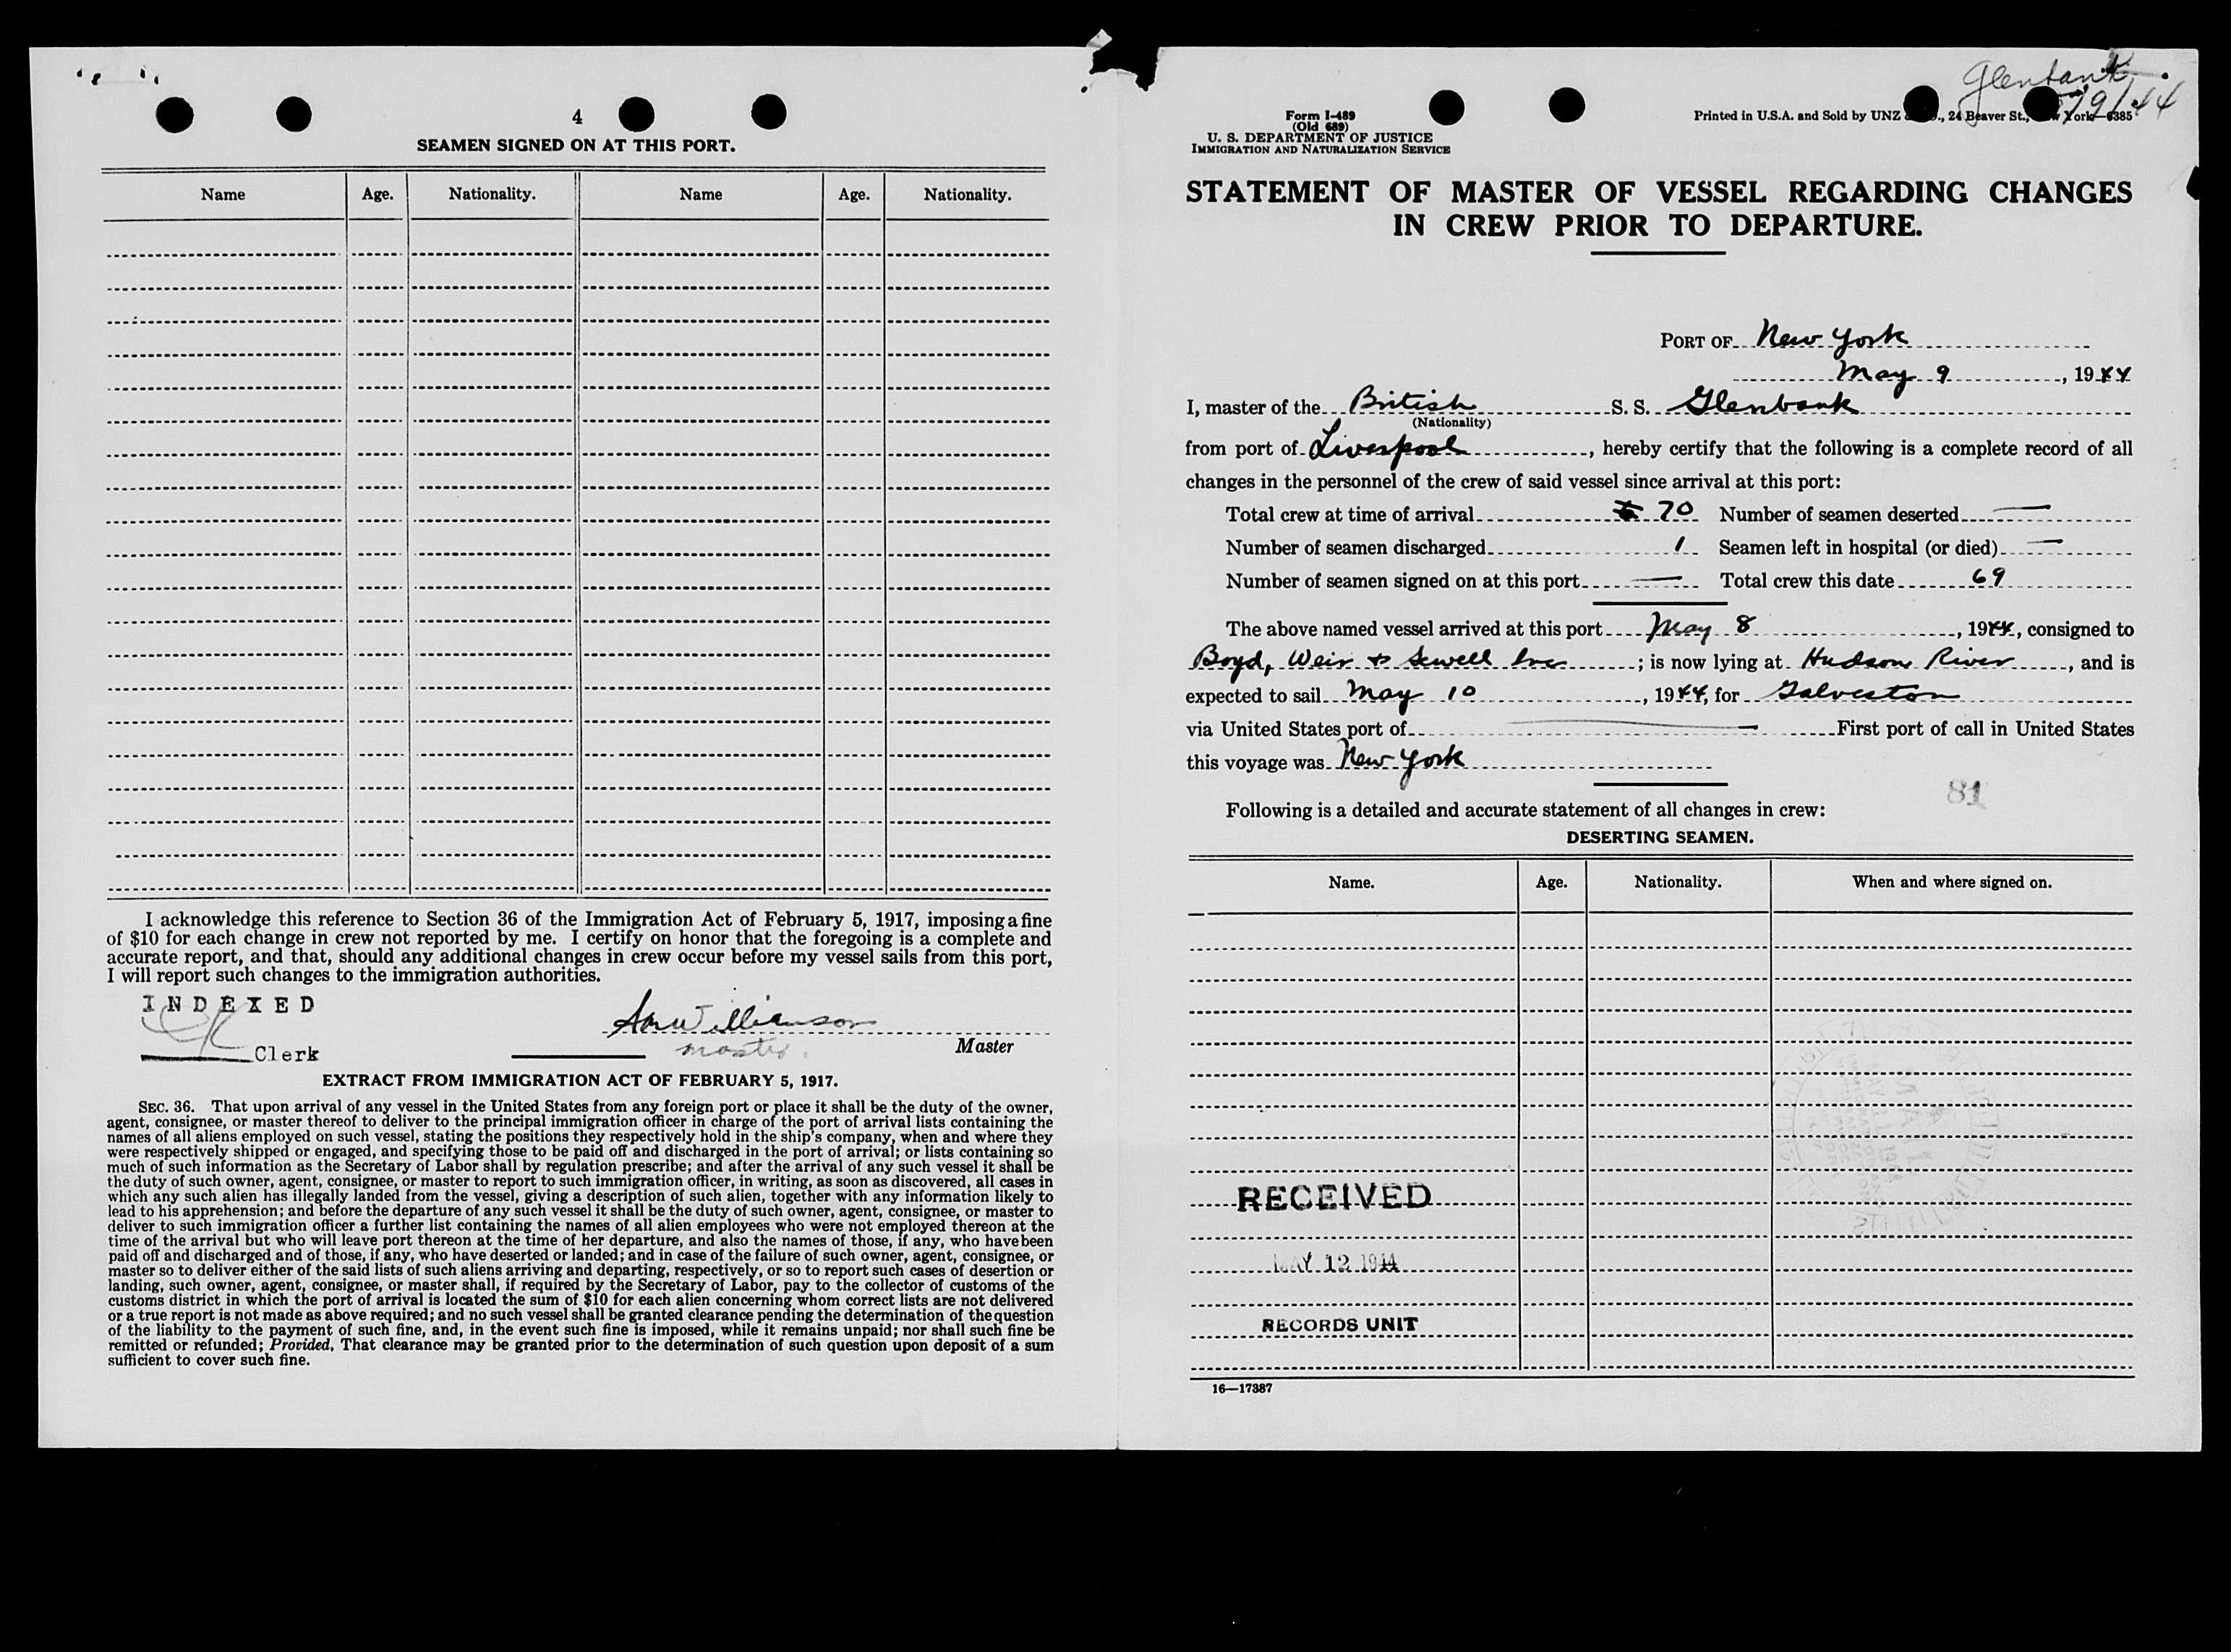 4
SEAMEN SIGNED ON AT THIS PORT.
Name Age. Nationality. Name Age. Nationality.
I acknowledge this reference to Section 36 of the Immigration Act of February 5, 1917, imposing a fine
of $10 for each change in crew not reported by me. I certify on honor that the foregoing is a complete and
accurate report, and that, should any additional changes in crew occur before my vessel sails from this port,
I will report such changes to the immigration authorities.
INDEXED
Williamson
Clerk master. Master
EXTRACT FROM IMMIGRATION ACT OF FEBRUARY 5, 1917.
SEC. 36. That upon arrival of any vessel in the United States from any foreign port or place it shall be the duty of the owner,
agent, consignee, or master thereof to deliver to the principal immigration officer in charge of the port of arrival lists containing the
names of all aliens employed on such vessel, stating the positions they respectively hold in the ship's company, when and where they
were respectively shipped or engaged, and specifying those to be paid off and discharged in the port of arrival; or lists containing so
much of such information as the Secretary of Labor shall by regulation prescribe; and after the arrival of any such vessel it shall be
the duty of such owner, agent, consignee, or master to report to such immigration officer, in writing, as soon as discovered, all cases in
which any such alien has illegally landed from the vessel, giving a description of such alien, together with any information likely to
lead to his apprehension; and before the departure of any such vessel it shall be the duty of such owner, agent, consignee, or master to
deliver to such immigration officer a further list containing the names of all alien employees who were not employed thereon at the
time of the arrival but who will leave port thereon at the time of her departure, and also the names of those, if any, who have been
paid off and discharged and of those, if any, who have deserted or landed; and in case of the failure of such owner, agent, consignee, or
master so to deliver either of the said lists of such aliens arriving and departing, respectively, or so to report such cases of desertion or
landing, such owner, agent, consignee, or master shall, if required by the Secretary of Labor, pay to the collector of customs of the
customs district in which the port of arrival is located the sum of $10 for each alien concerning whom correct lists are not delivered
or a true report is not made as above required; and no such vessel shall be granted clearance pending the determination of the question
of the liability to the payment of such fine, and, in the event such fine is imposed, while it remains unpaid; nor shall such fine be
remitted or refunded; Provided, That clearance may be granted prior to the determination of such question upon deposit of a sum
sufficient to cover such fine.
Glenbank
Form I-489
(Old 689)
U. S. DEPARTMENT OF JUSTICE
IMMIGRATION AND NATURALIZATION SERVICE
Printed in U.S.A. and Sold by UNZ 24 Beaver St., York—6385
STATEMENT OF MASTER OF VESSEL REGARDING CHANGES
IN CREW PRIOR TO DEPARTURE.
PORT OF New York
May 9, 1944
I, master of the British S. S. Glenbank
(Nationality)
from port of Liverpool, hereby certify that the following is a complete record of all
changes in the personnel of the crew of said vessel since arrival at this port:
Total crew at time of arrival 70 Number of seamen deserted —
Number of seamen discharged 1 Seamen left in hospital (or died) —
Number of seamen signed on at this port — Total crew this date 69
The above named vessel arrived at this port May 8, 1944, consigned to
Boyd, Weir & Sewell Inc; is now lying at Hudson River, and is
expected to sail May 10, 1944, for Galveston
via United States port of — First port of call in United States
this voyage was New York
81
Following is a detailed and accurate statement of all changes in crew:
DESERTING SEAMEN.
Name. Age. Nationality. When and where signed on.
RECEIVED
MAY 12 1944
RECORDS UNIT
16—17387